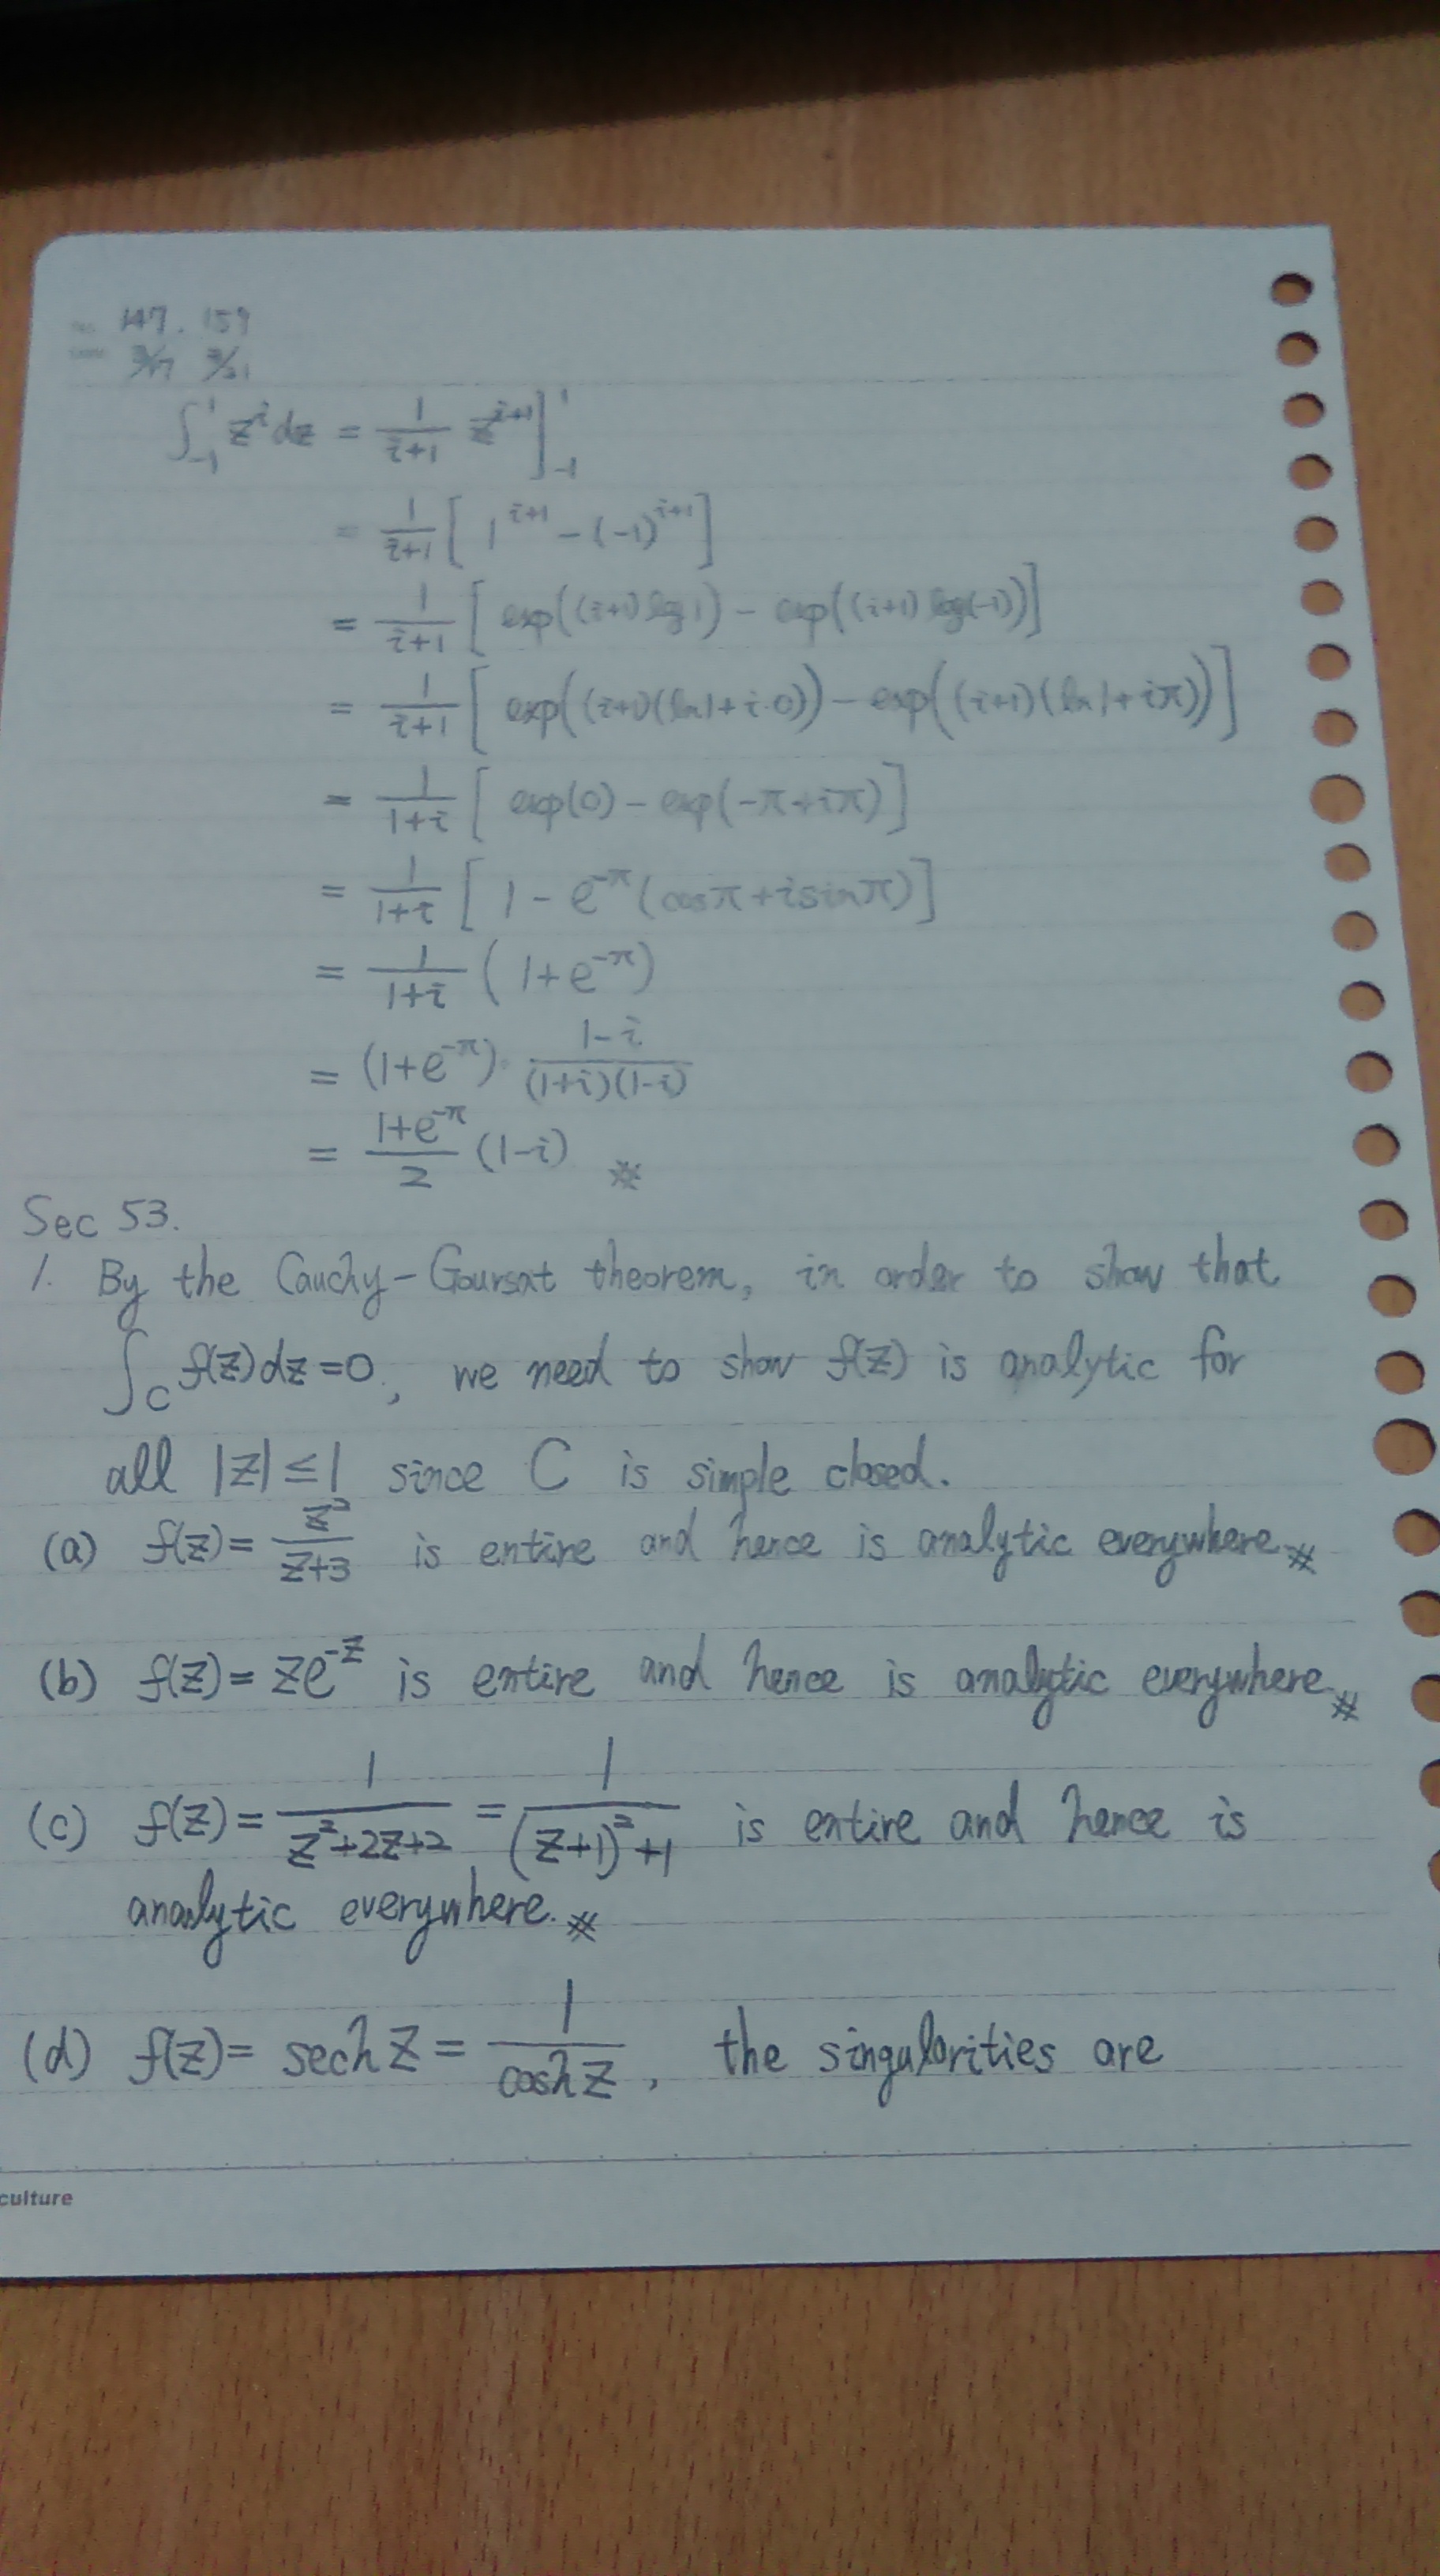 147. 159
3/17 3/21
∫₋₁¹ zⁱ dz = 1/(i+1) z^(i+1)]₋₁¹
= 1/(i+1) [ 1^(i+1) - (-1)^(i+1) ]
= 1/(i+1) [ exp((i+1) log 1) - exp((i+1) log(-1)) ]
= 1/(i+1) [ exp((i+1)(ln 1 + i·0)) - exp((i+1)(ln 1 + iπ)) ]
= 1/(1+i) [ exp(0) - exp(-π+iπ) ]
= 1/(1+i) [ 1 - e^(-π) (cosπ + i sinπ) ]
= 1/(1+i) ( 1+e^(-π) )
= (1+e^(-π)) · (1-i)/((1+i)(1-i))
= (1+e^(-π))/2 (1-i) ※
Sec 53.
1. By the Cauchy-Goursat theorem, in order to show that
∫_C f(z)dz=0, we need to show f(z) is analytic for
all |z| ≤ 1 since C is simple closed.
(a) f(z) = z²/(z+3) is entire and hence is analytic everywhere. ※
(b) f(z) = ze^(-z) is entire and hence is analytic everywhere. ※
(c) f(z) = 1/(z²+2z+2) = 1/((z+1)²+1) is entire and hence is
analytic everywhere. ※
(d) f(z) = sech z = 1/cosh z, the singularities are
culture